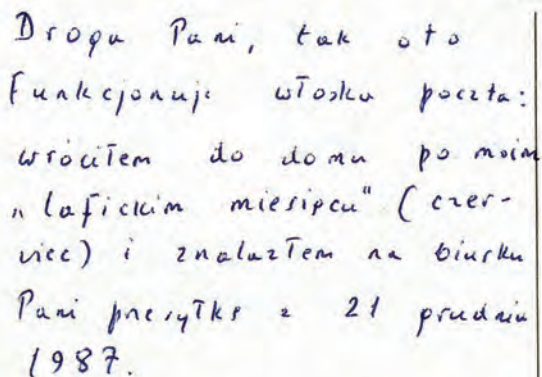 Droga Pani, tak oto
funkcjonuje włoska poczta:
wróciłem do domu po moim
„lafickim miesiącu" (czer-
wiec) i znalazłem na biurku
Pani przesyłkę z 21 grudnia
1987.